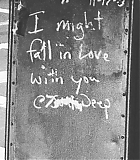 I might
fall in love
with you